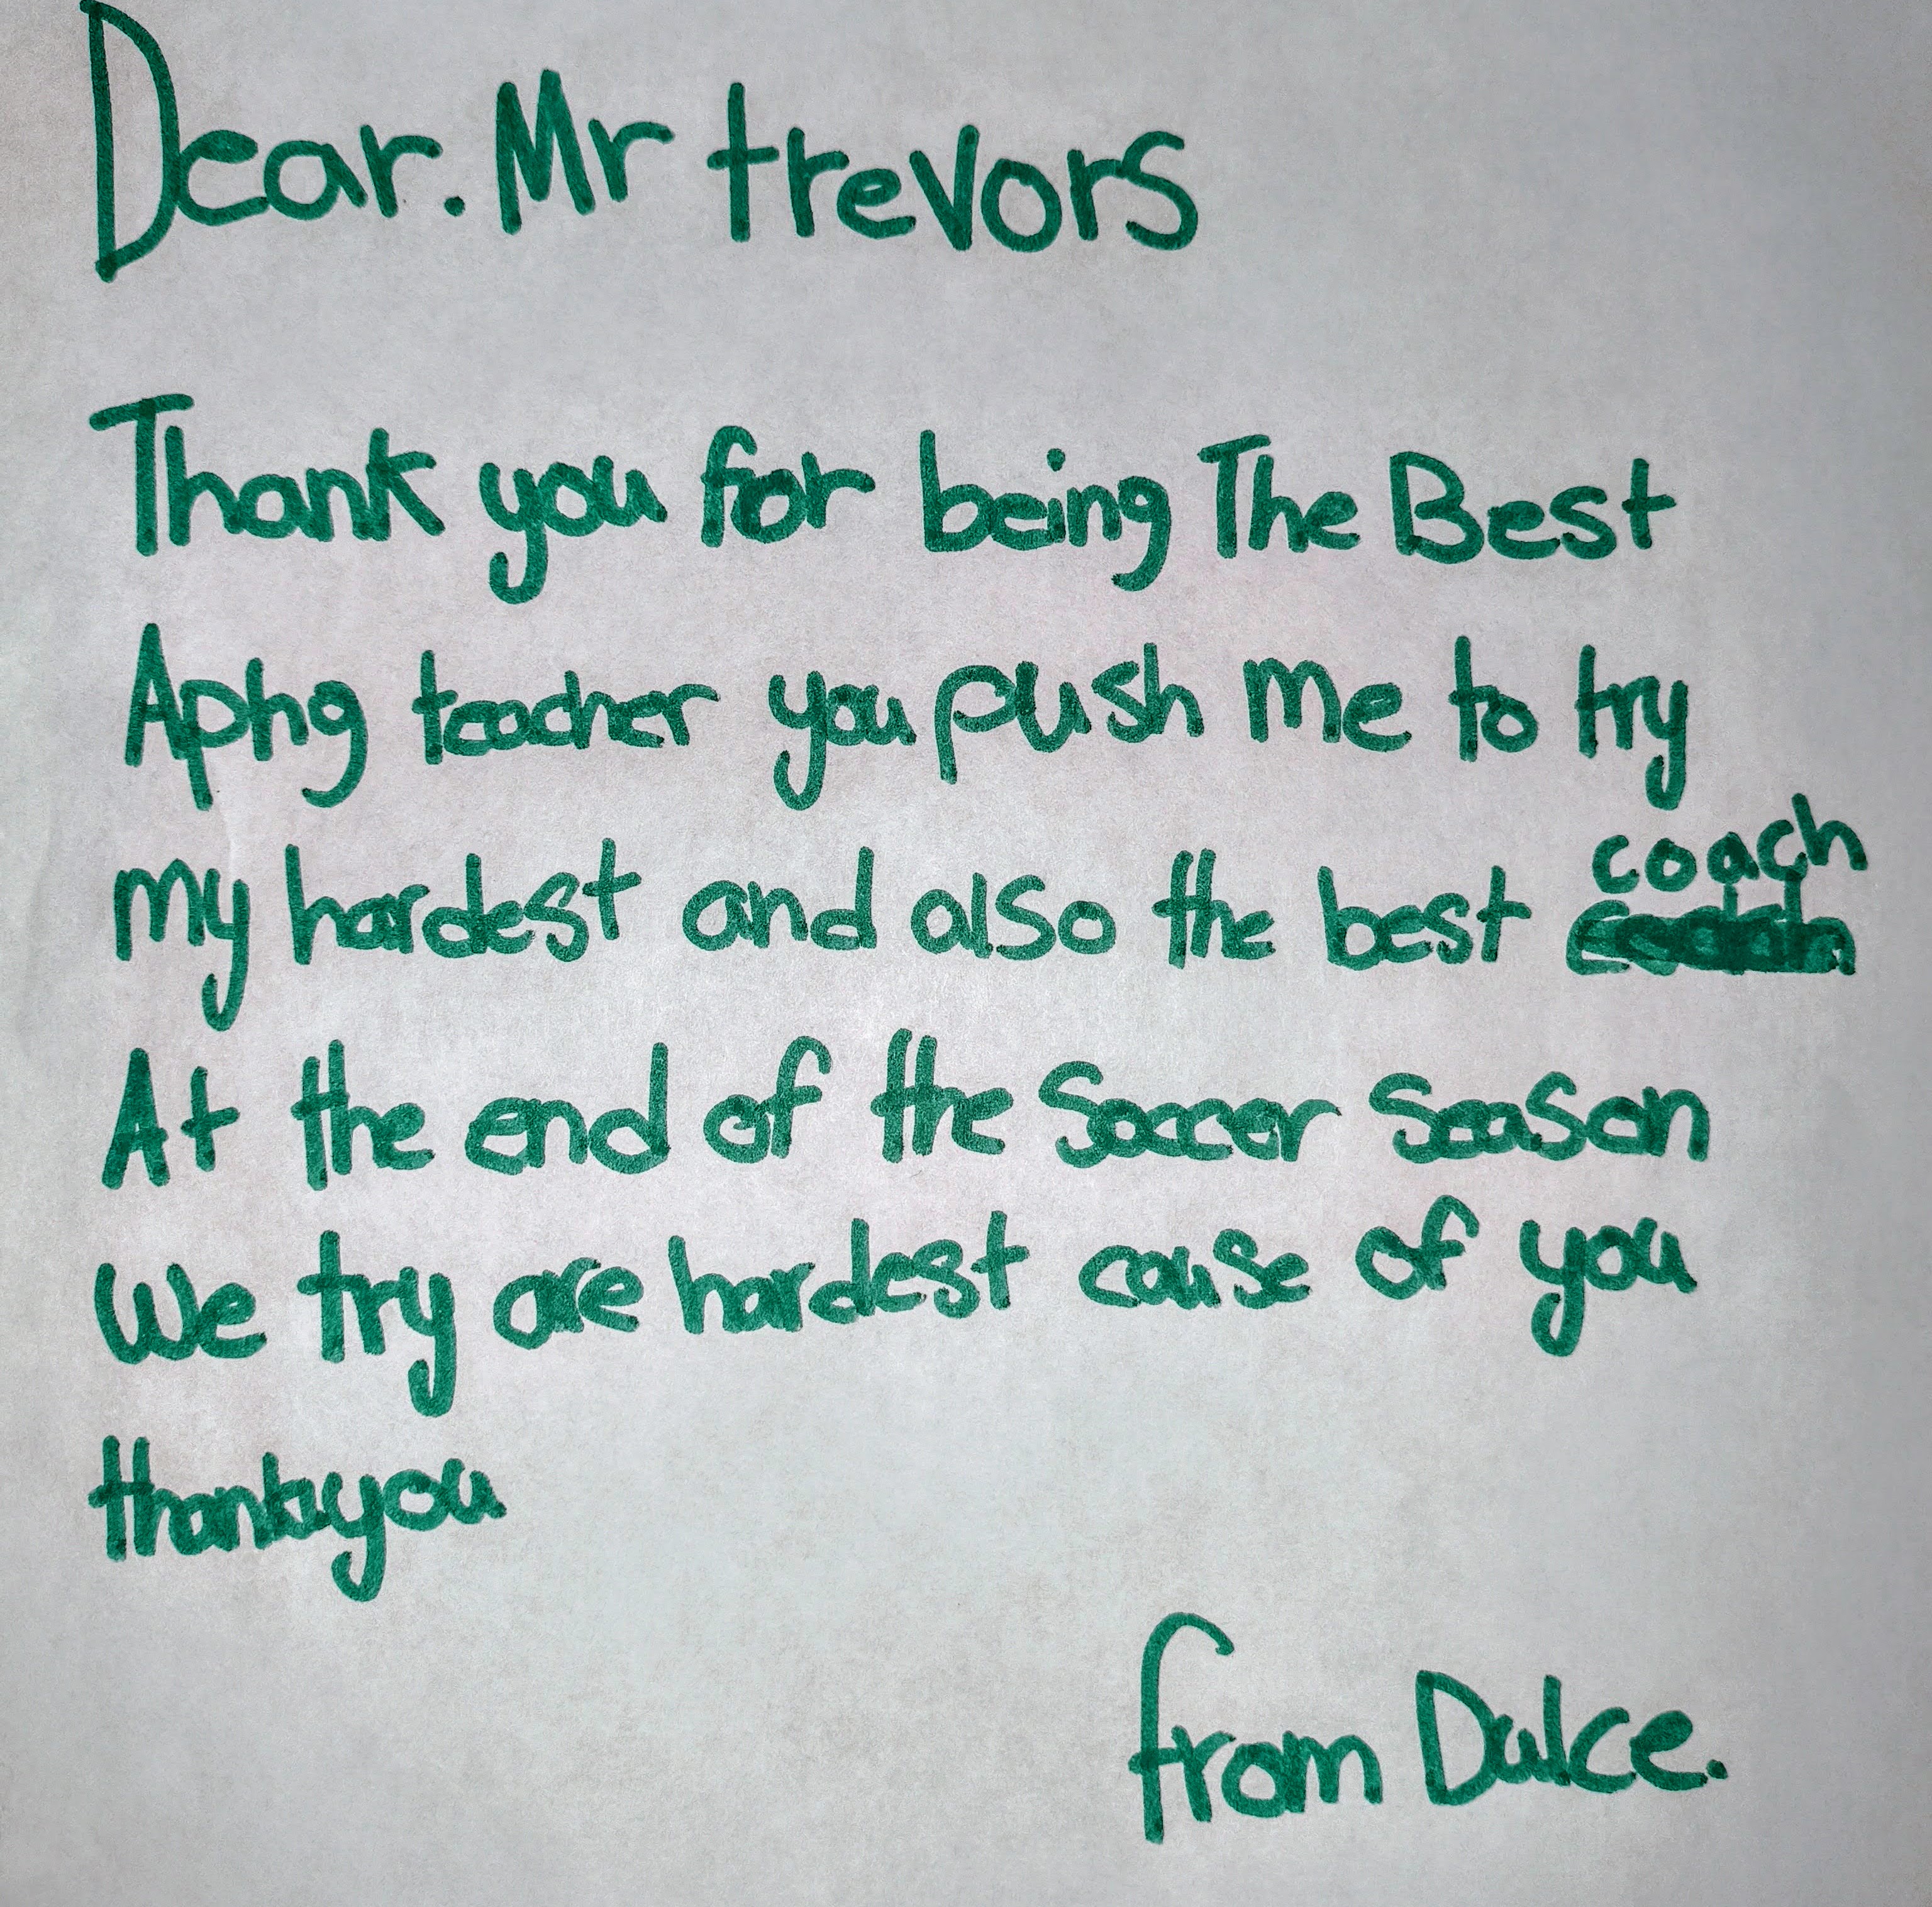 Dear. Mr trevors
Thank you for being The Best
Aphg teacher you push me to try
my hardest and also the best coach
At the end of the Soccer Season
We try are hardest cause of you
thankyou
from Dulce.